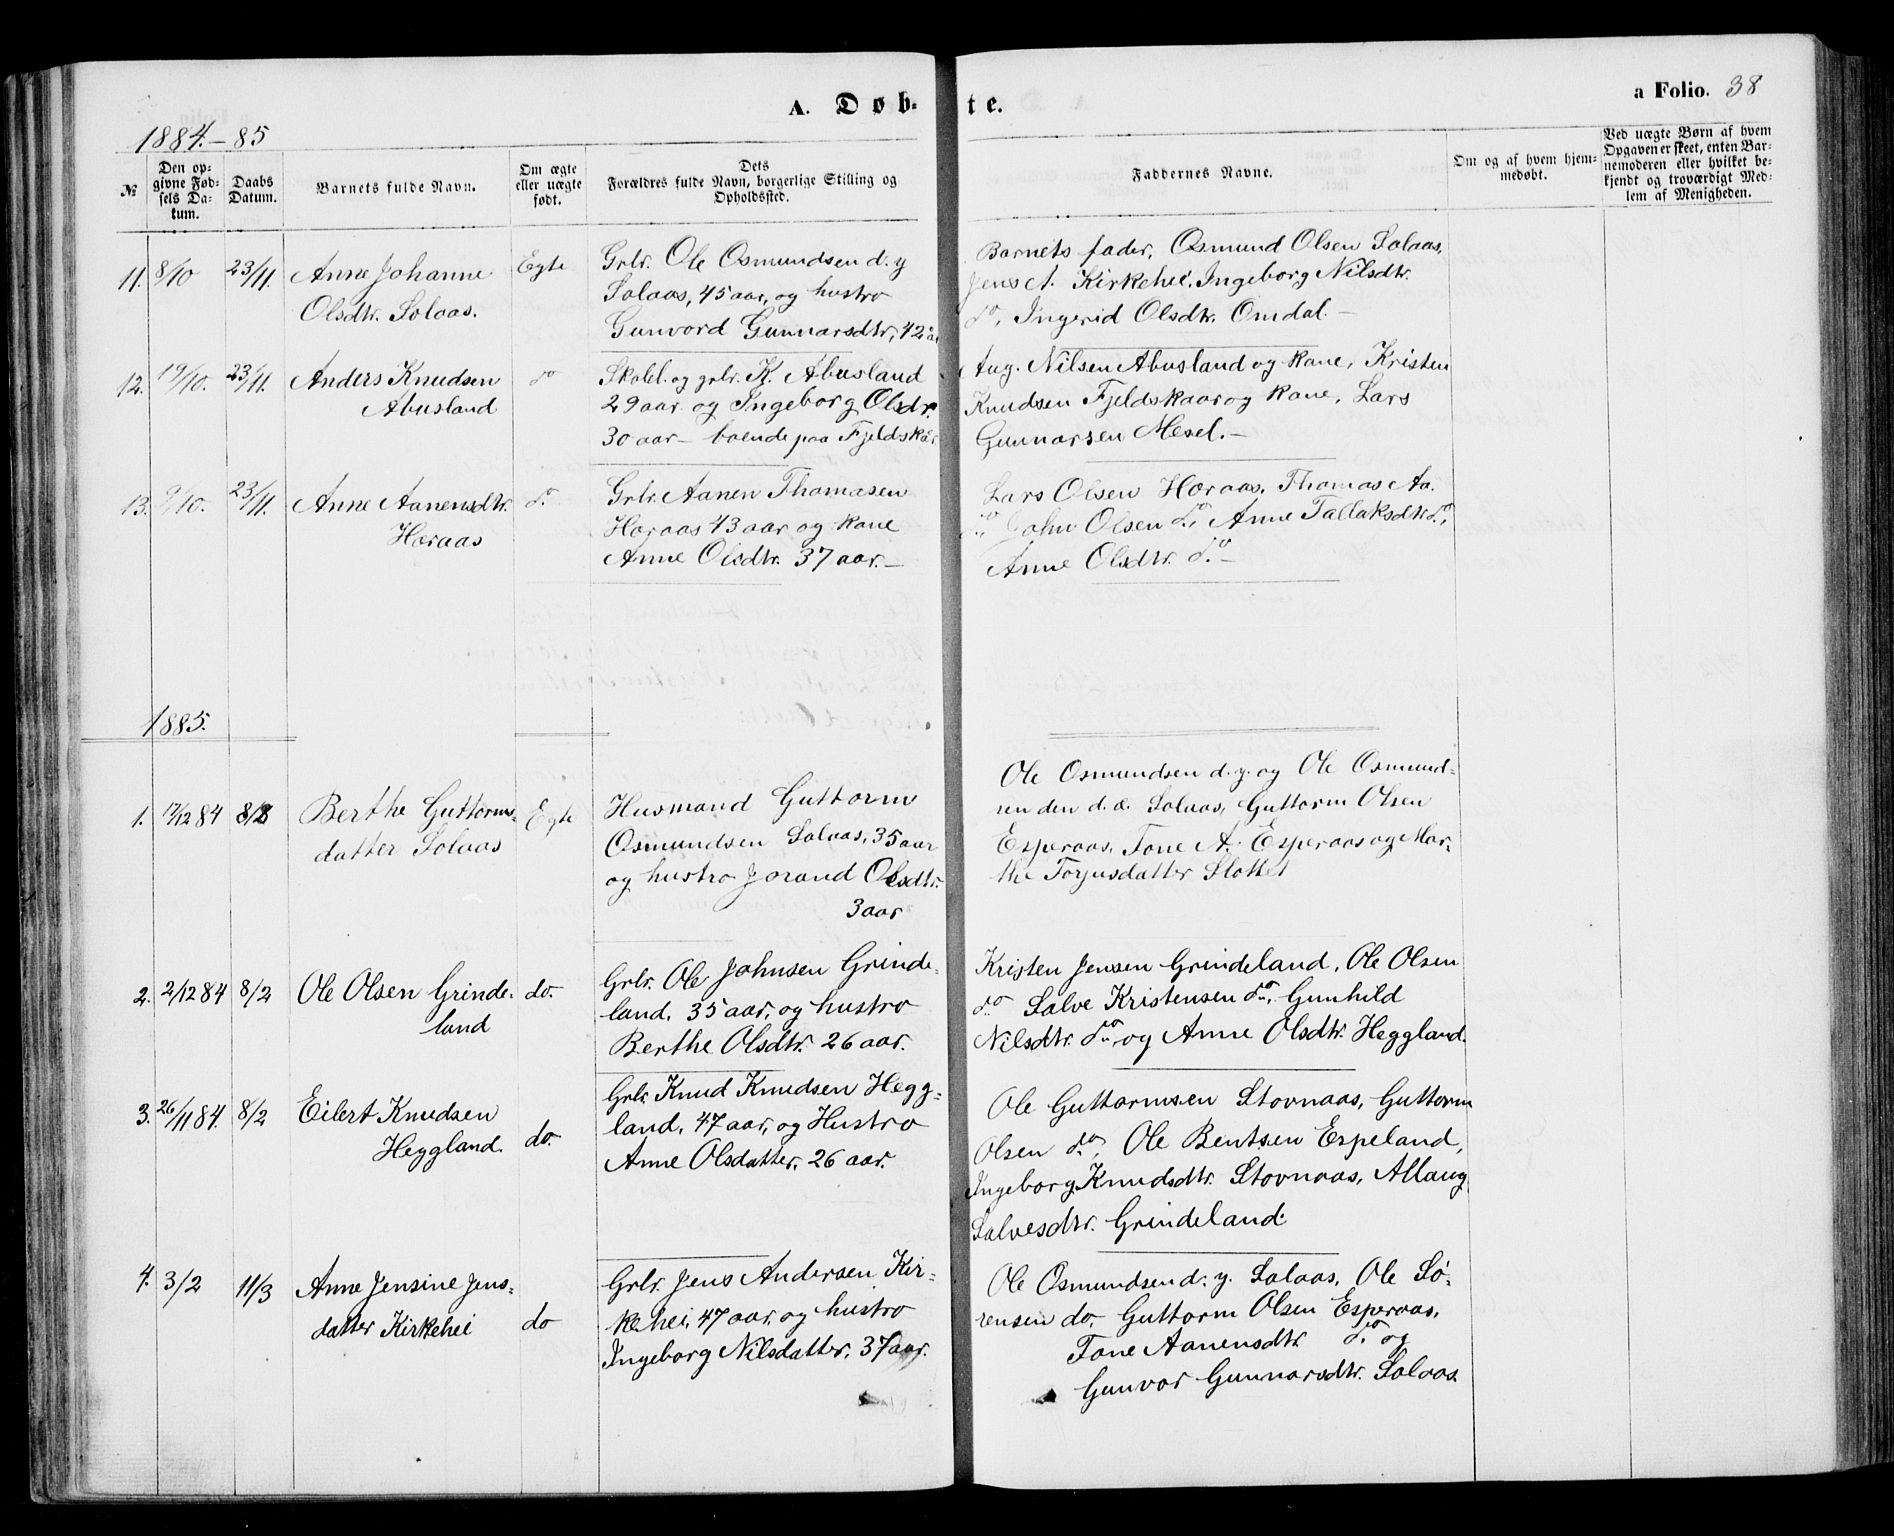 A. Døb-te.
a Folio. 38
1884.-85
№
Den op-
givne Fød-
sels Da-
tum.
Daabs
Datum.
Barnets fulde Navn.
Om ægte
eller uægte
født.
Dets
Forældres fulde Navn, borgerlige Stilling og
Opholdssted.
Faddernes Navne.
Om og af hvem hjem-
medøbt.
Ved uægte Børn af hvem
Opgaven er skeet, enten Bar-
nemoderen eller hvilket be-
kjendt og troværdigt Med-
lem af Menigheden.
11. 8/10 23/11. Anne Johanne
Olsdtr. Solaas.
Egte
Grbr. Ole Osmundsen d. y
Solaas, 45 aar, og hustro
Gunvord Gunnarsdtr, 42 aa
Barnets fader, Osmund Olsen Solaas,
Jens A. Kirkehei, Ingeborg Nilsdtr.
do, Ingerid Olsdtr. Omdal.-
12. 19/10. 23/11. Anders Knudsen
Abusland
do
Skolel. og grbr. K. Abusland
29 aar og Ingeborg Olsdr.
30 aar - boende paa Fjeldskår
Aug. Nilsen Abusland og kane, Kristen
Knudsen Fjeldskaar og kane, Lars
Gunnarsen Mesel.-
13. 9/10. 23/11. Anne Aanensdtr.
Horaas
do
Grbr. Aanen Thomasen
Horaas 43 aar og kane
Anne Olsdtr. 37 aar.-
Lars Olsen Horaas, Thomas Aa.
do, John Olsen do, Anne Tallaksdtr do,
Anne Olsdtr. do.-
1885.
1. 17/12 84 8/2 Berthe Guttorms-
datter Solaas
Egte
Husmand Guttorm
Osmundsen Solaas, 35 aar
og hustro Jorand Olsdtr.
3 aar
Ole Osmundsen d. y. og Ole Osmund-
sen den d. æ. Solaas, Guttorm Olsen
Esperaas, Tone A. Esperaas og Mar-
the Torjusdatter Slottet
2. 2/12 84 8/2 Ole Olsen Grinde-
land
do.
Grbr. Ole Johnsen Grinde-
land, 35 aar, og hustro
Berthe Olsdtr. 26 aar.
Kristen Jensen Grindeland, Ole Olsen
do Salve Kristensen do, Gunhild
Nilsdtr. do, og Anne Olsdtr. Heggland.
3. 26/11 84. 8/2 Eilert Knudsen
Heggland.
do.
Grbr Knud Knudsen Hegg-
land, 47 aar, og Hustro
Anne Olsdatter, 26 aar.
Ole Guttormsen Stovnaas, Guttorm
Olsen do, Ole Bentsen Espeland,
Ingeborg Knudsdtr. Stovnaas, Allaug
Salvesdtr. Grindeland.
4. 3/2 11/3 Anne Jensine Jens-
datter Kirkehei
do
Grbr. Jens Andersen Kir-
kehei, 47 aar, og hustro
Ingeborg Nilsdatter, 37 aar.
Ole Osmundsen d. y. Solaas, Ole Sö-
rensen do, Guttorm Olsen Esperaas,
Tone Aanensdtr. do og
Gunvor Gunnarsdtr. Solaas.